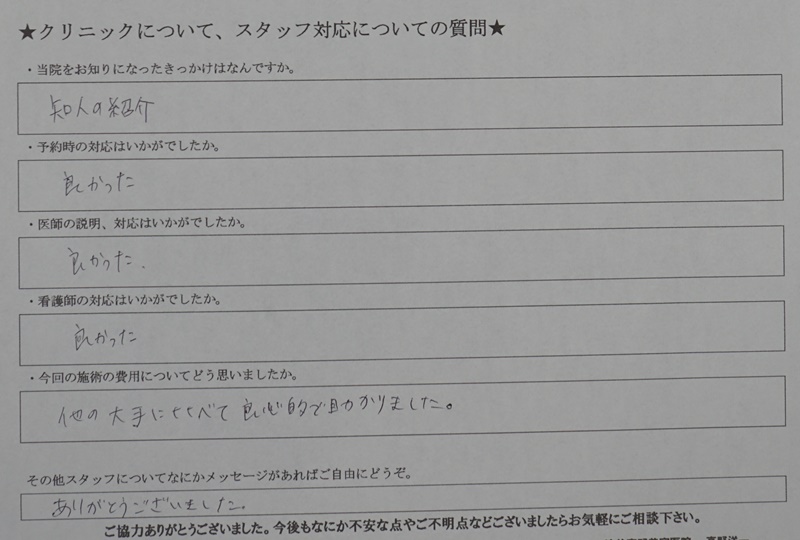 ★クリニックについて、スタッフ対応についての質問★
・当院をお知りになったきっかけはなんですか。
知人の紹介
・予約時の対応はいかがでしたか。
良かった
・医師の説明、対応はいかがでしたか。
良かった.
・看護師の対応はいかがでしたか。
良かった
・今回の施術の費用についてどう思いましたか。
他の大手にくらべて良心的で助かりました。
その他スタッフについてなにかメッセージがあればご自由にどうぞ。
ありがとうございました。
ご協力ありがとうございました。今後もなにか不安な点やご不明点などございましたらお気軽にご相談下さい。